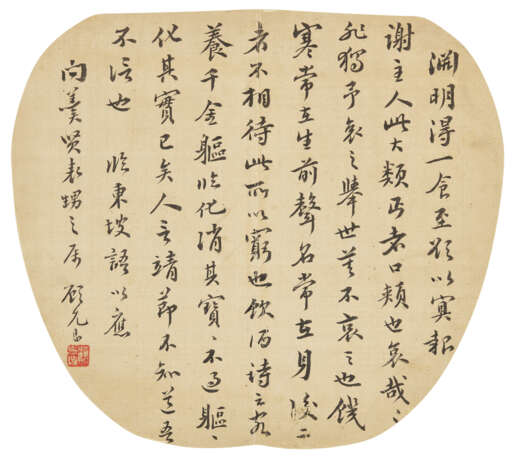 淵明得一食至欲以冥報
謝主人此大類丐者口頰也哀哉〻
非獨予哀之舉世莫不哀之也饑
寒常在生前聲名常在身後二
者不相待此所以窮也飲酒詩云客
養千金軀臨化消其寶〻不過軀〻
化其寶已矣人言靖節不知道吾
不信也 臨東坡語以應
向羹賢表甥之屬 顧允